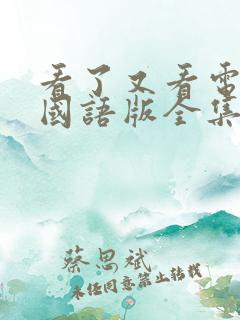 看了又看電
國語版全集
蔡思斌
未经同意禁止转载